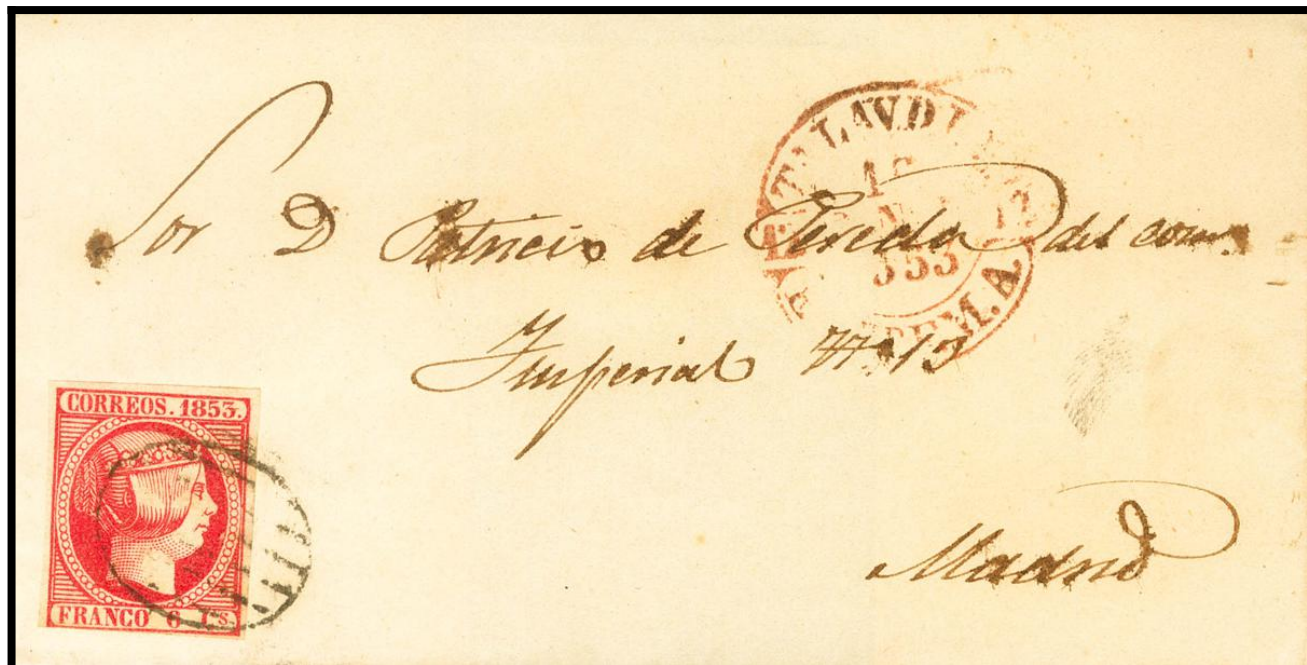 Sor D Patricio de Pereda del com.
Imperial N. 13
Madrid
CORREOS. 1853.
FRANCO 6 Cs